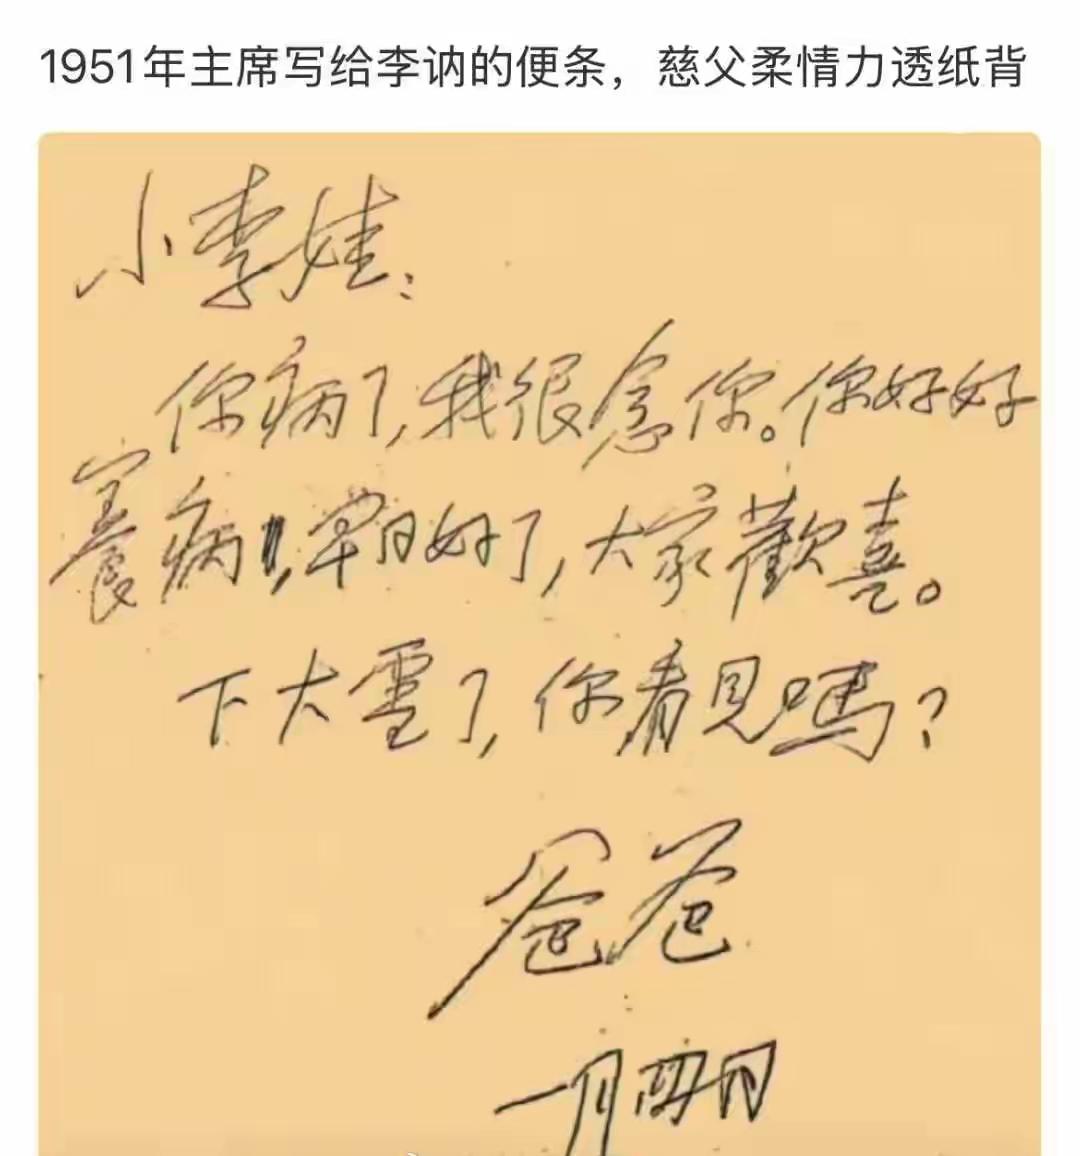 1951年主席写给李讷的便条，慈父柔情力透纸背
小李娃：
你病了，我很念你。你好好
養病，早日好了，大家歡喜。
下大雪了，你看見嗎？
爸爸
一月四日